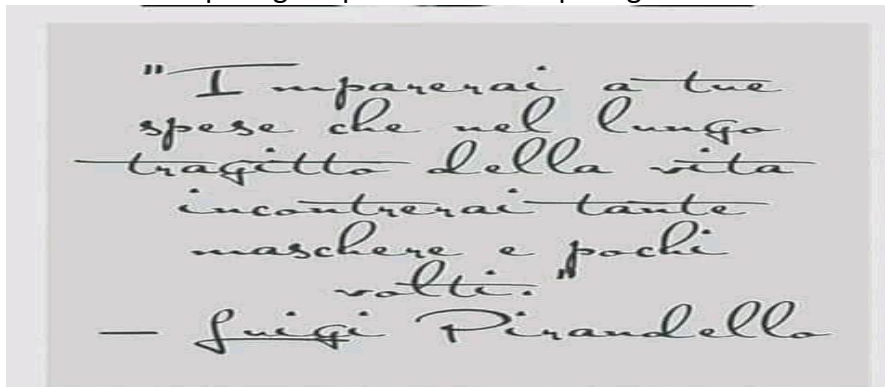 "Imparerai a tue
spese che nel lungo
tragitto della vita
incontrerai tante
maschere e pochi
volti."
— Luigi Pirandello